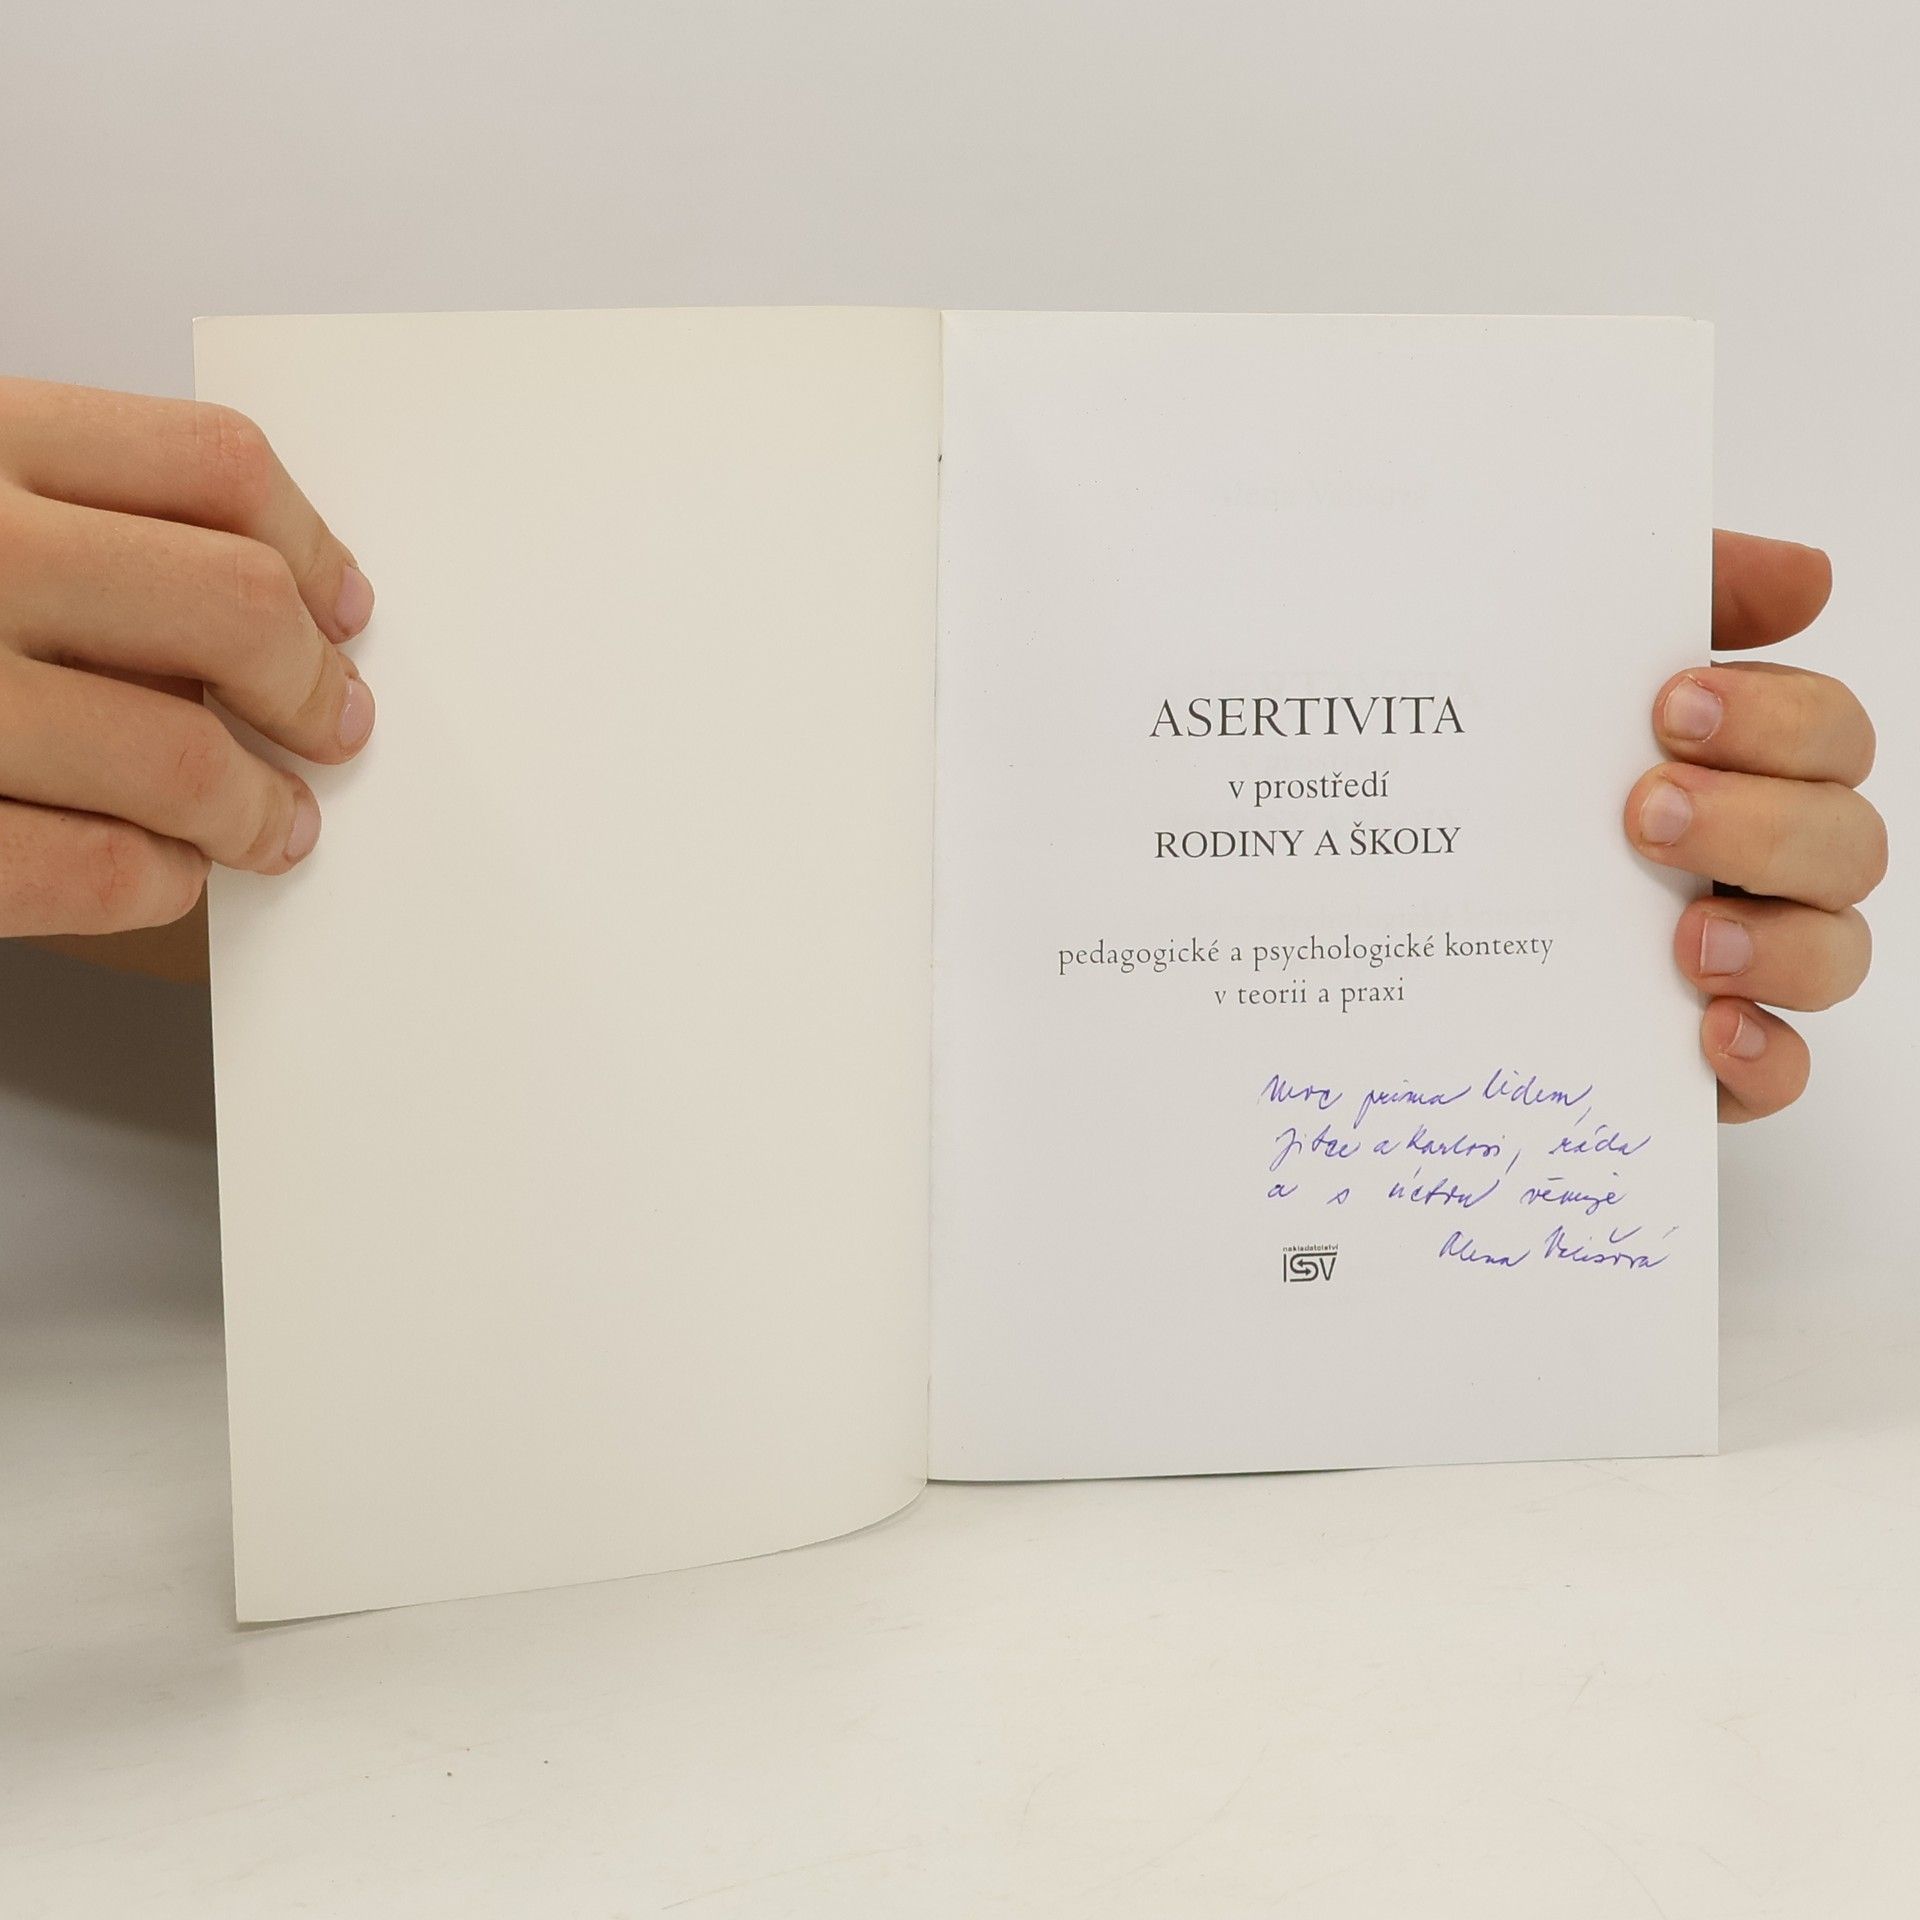 ASERTIVITA
v prostředí
RODINY A ŠKOLY
pedagogické a psychologické kontexty
v teorii a praxi
Moc prima lidem,
Jitce a Karlovi, ráda
a s úctou věnuje
Alena Vališová
nakladatelství
ISV